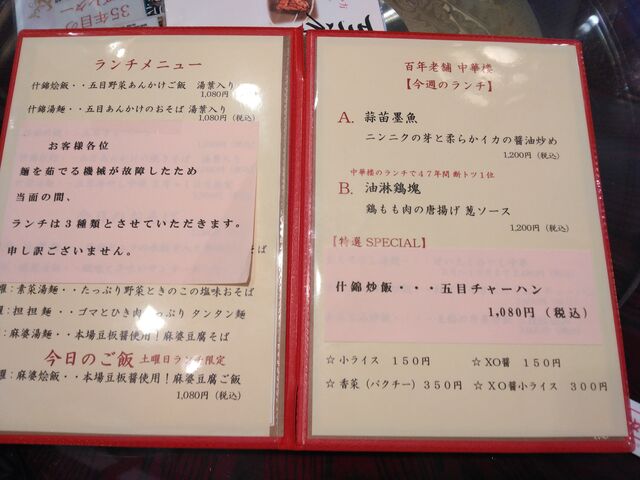 35年目の
ランチメニュー
什錦烩飯・・五目野菜あんかけご飯 湯葉入り
1,080円(税込)
什錦湯麺・・五目あんかけのおそば 湯葉入り
1,080円(税込)
お客様各位
麺を茹でる機械が故障したため
当面の間、
ランチは3種類とさせていただきます。
申し訳ございません。
曜:素菜湯麺・・たっぷり野菜ときのこの塩味おそば
曜:担担麺・・ゴマとひき肉たっぷり タンタン麺
:麻婆湯麺・・本場豆板醤使用!麻婆豆腐そば
今日のご飯 土曜日ランチ限定
曜:麻婆烩飯・・本場豆板醤使用!麻婆豆腐ご飯
1,080円(税込)
百年老舗 中華楼
【今週のランチ】
A. 蒜苗墨魚
ニンニクの芽と柔らかイカの醤油炒め
1,200円(税込)
中華楼のランチで47年間断トツ1位
B. 油淋鶏塊
鶏もも肉の唐揚げ 葱ソース
1,200円(税込)
【特選 SPECIAL】
什錦炒飯・・・五目チャーハン
1,080円(税込)
☆小ライス 150円 ☆XO醤 150円
☆香菜(パクチー)350円 ☆XO醤小ライス 300円